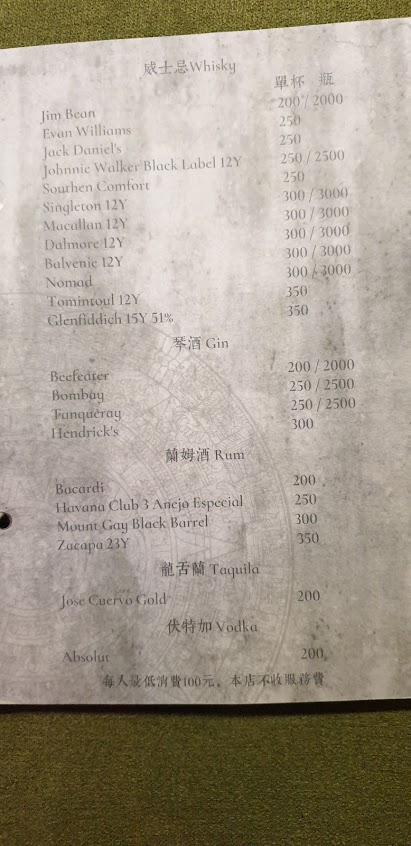 威士忌Whisky
單杯 瓶
Jim Bean 200 / 2000
Evan Williams 250
Jack Daniel's 250
Johnnie Walker Black Label 12Y 250 / 2500
Southen Comfort 250
Singleton 12Y 300 / 3000
Macallan 12Y 300 / 3000
Dalmore 12Y 300 / 3000
Balvenie 12Y 300 / 3000
Nomad 300 / 3000
Tomintoul 12Y 350
Glenfiddich 15Y 51% 350
琴酒 Gin
Beefeater 200 / 2000
Bombay 250 / 2500
Tanqueray 250 / 2500
Hendrick's 300
蘭姆酒 Rum
Bacardi 200
Havana Club 3 Anejo Especial 250
Mount Gay Black Barrel 300
Zacapa 23Y 350
龍舌蘭 Taquila
Jose Cuervo Gold 200
伏特加 Vodka
Absolut 200
每人最低消費100元，本店不收服務費